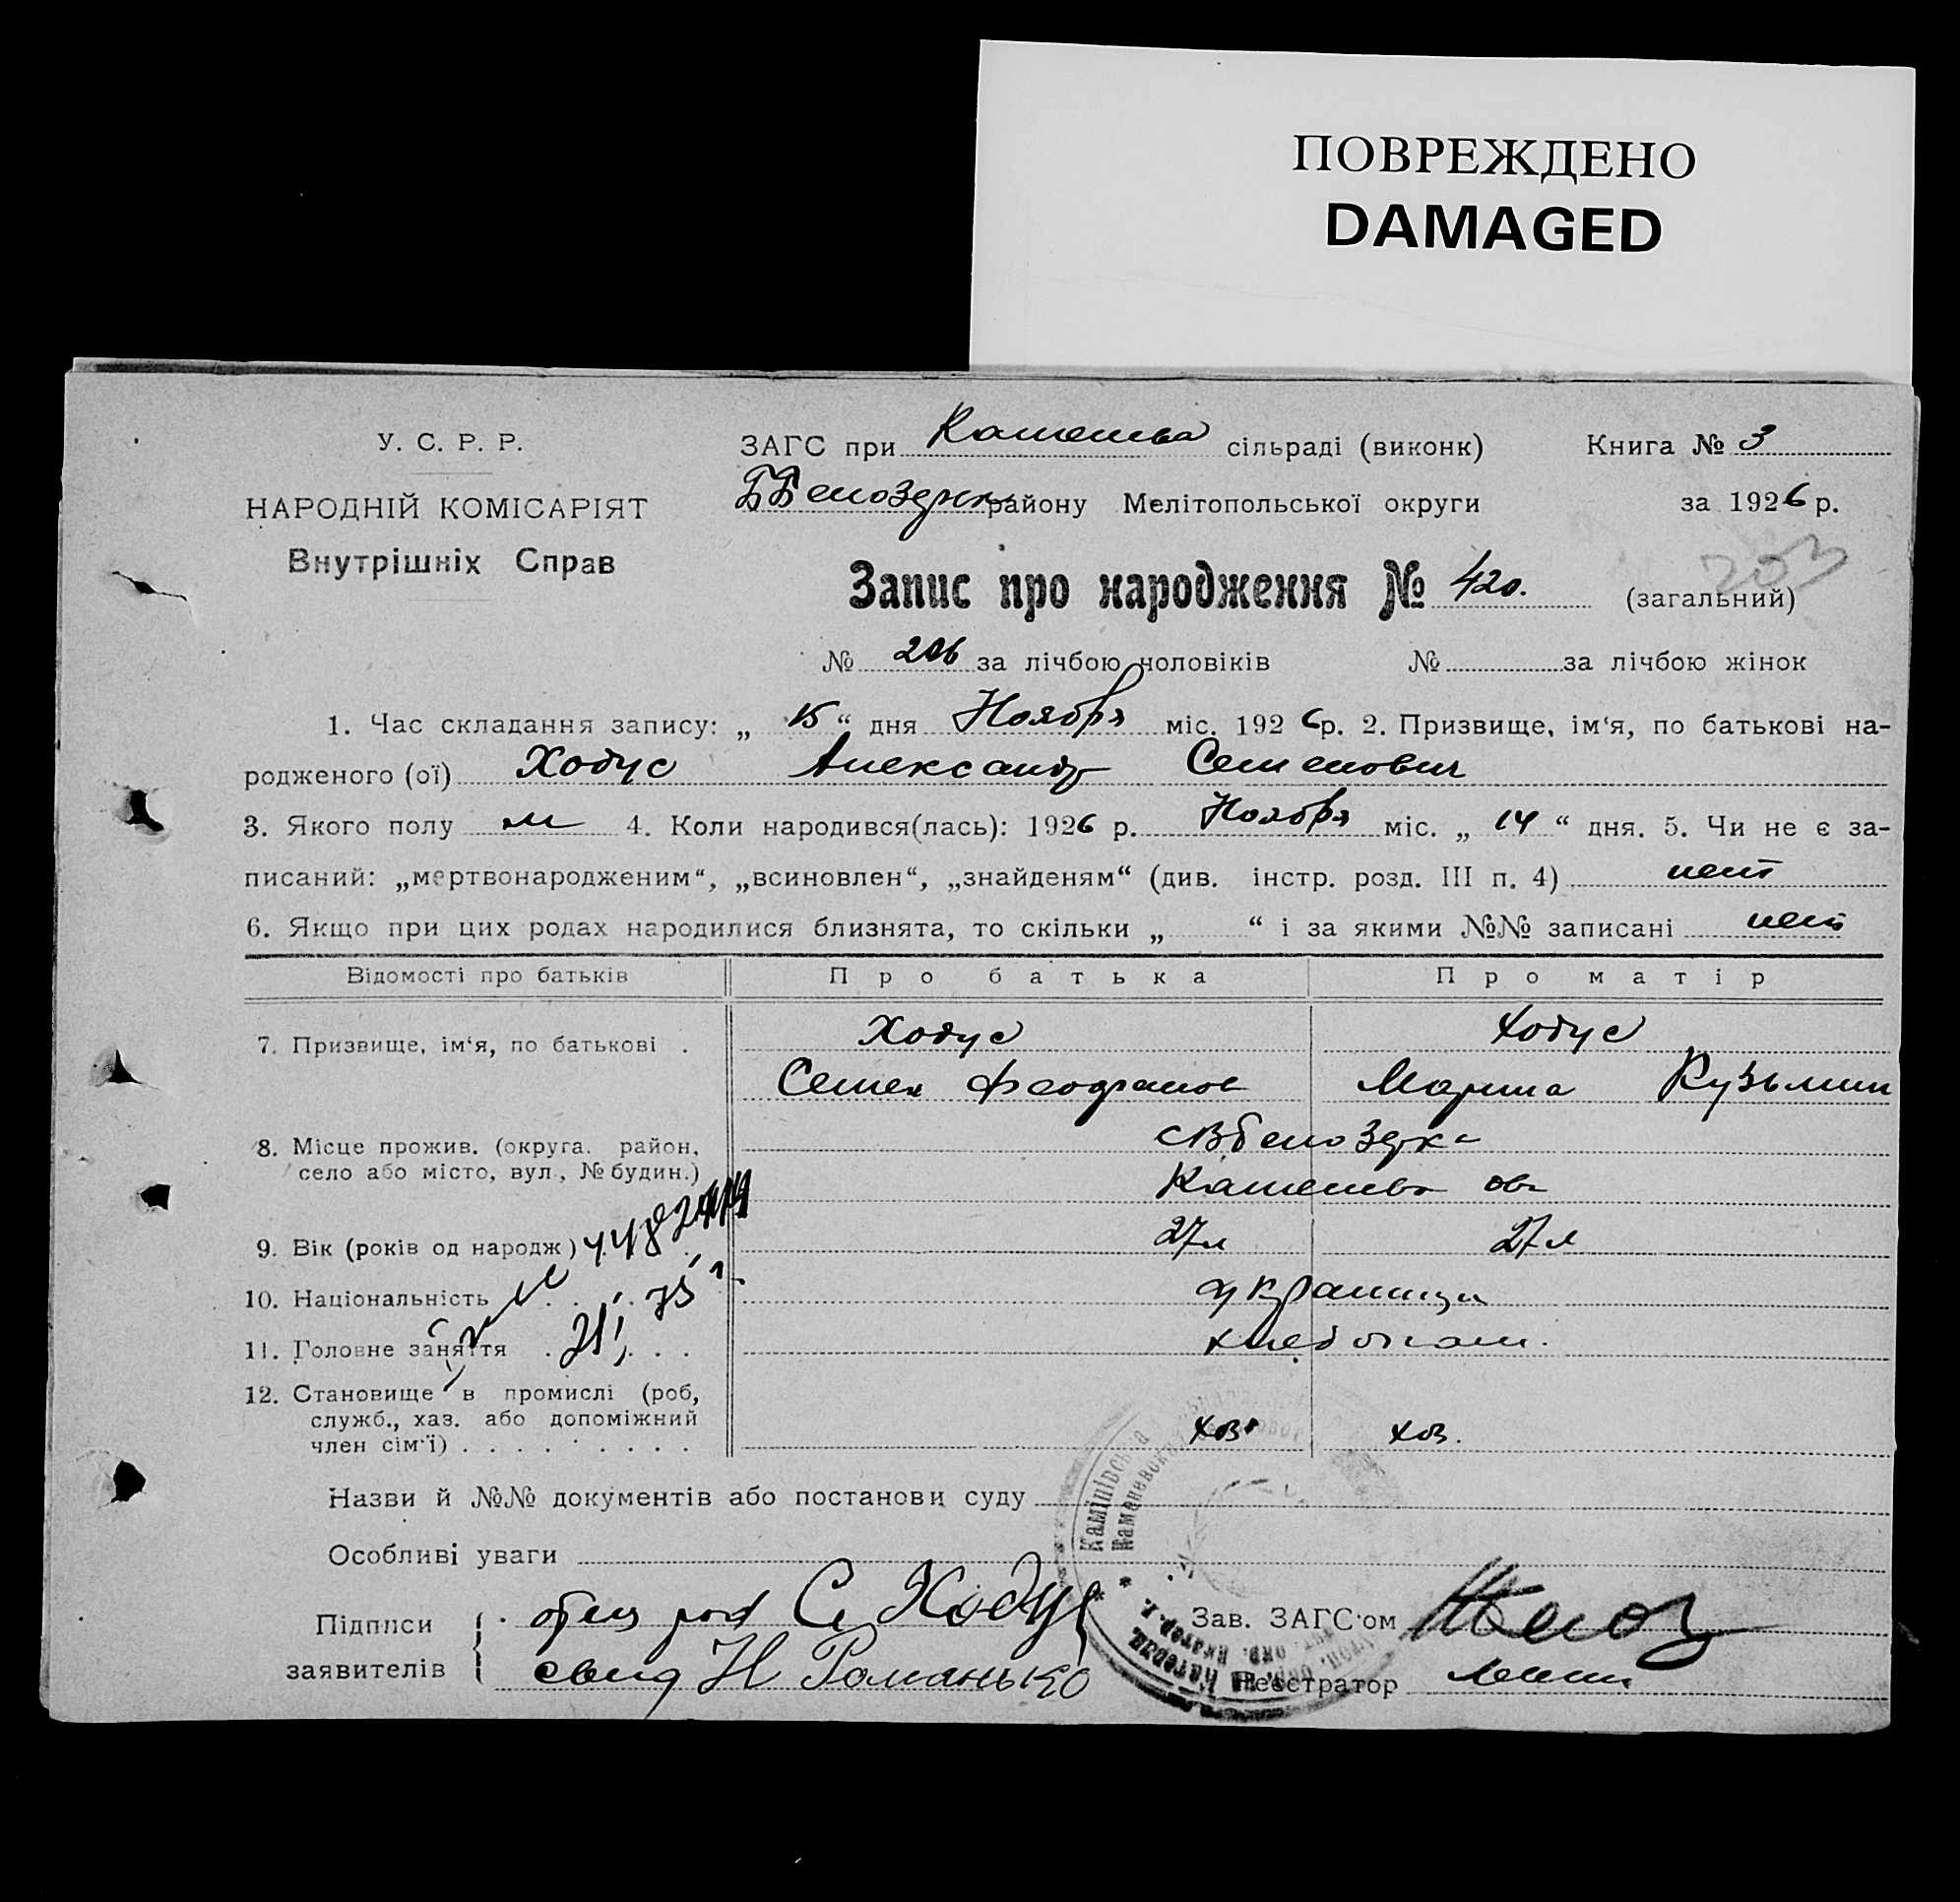 ПОВРЕЖДЕНО
DAMAGED
У. С. Р. Р.
НАРОДНІЙ КОМІСАРІЯТ
Внутрішніх Справ
ЗАГС при сільраді (виконк) Книга № 3
району Мелітопольської округи за 1926 р.
203
Запис про народження № 420. (загальний)
№ 206 за лічбою чоловіків № за лічбою жінок
1. Час складання запису: „ 15 “ дня Ноября міс. 1926 р. 2. Призвище, ім‘я, по батькові на-
родженого (ої) Ходус Александр Семенович
3. Якого полу м 4. Коли народився(лась): 1926 р. Ноября міс. „ 14 “ дня. 5. Чи не є за-
писаний: „мертвонародженим“, „всиновлен“, „знайденям“ (див. інстр. розд. III п. 4) нет
6. Якщо при цих родах народилися близнята, то скільки „ “ і за якими №№ записані нет
Відомості про батьків Про батька Про матір
7. Призвище, ім‘я, по батькові . Ходус Ходус
Семен Марина Кузьмин
8. Місце прожив. (округа. район,
село або місто, вул., № будин.)
9. Вік (років од народж) 27л 27л
10. Національність украинцы
11. Головне заняття хлебопаш.
12. Становище в промислі (роб,
служб., хаз. або допоміжний
член сім‘ї) хоз. хоз.
Назви й №№ документів або постанови суду
Особливі уваги
Підписи
заявителів
отец С Ходус
свид Н Романько
Зав. ЗАГС‘ом
Реєстратор